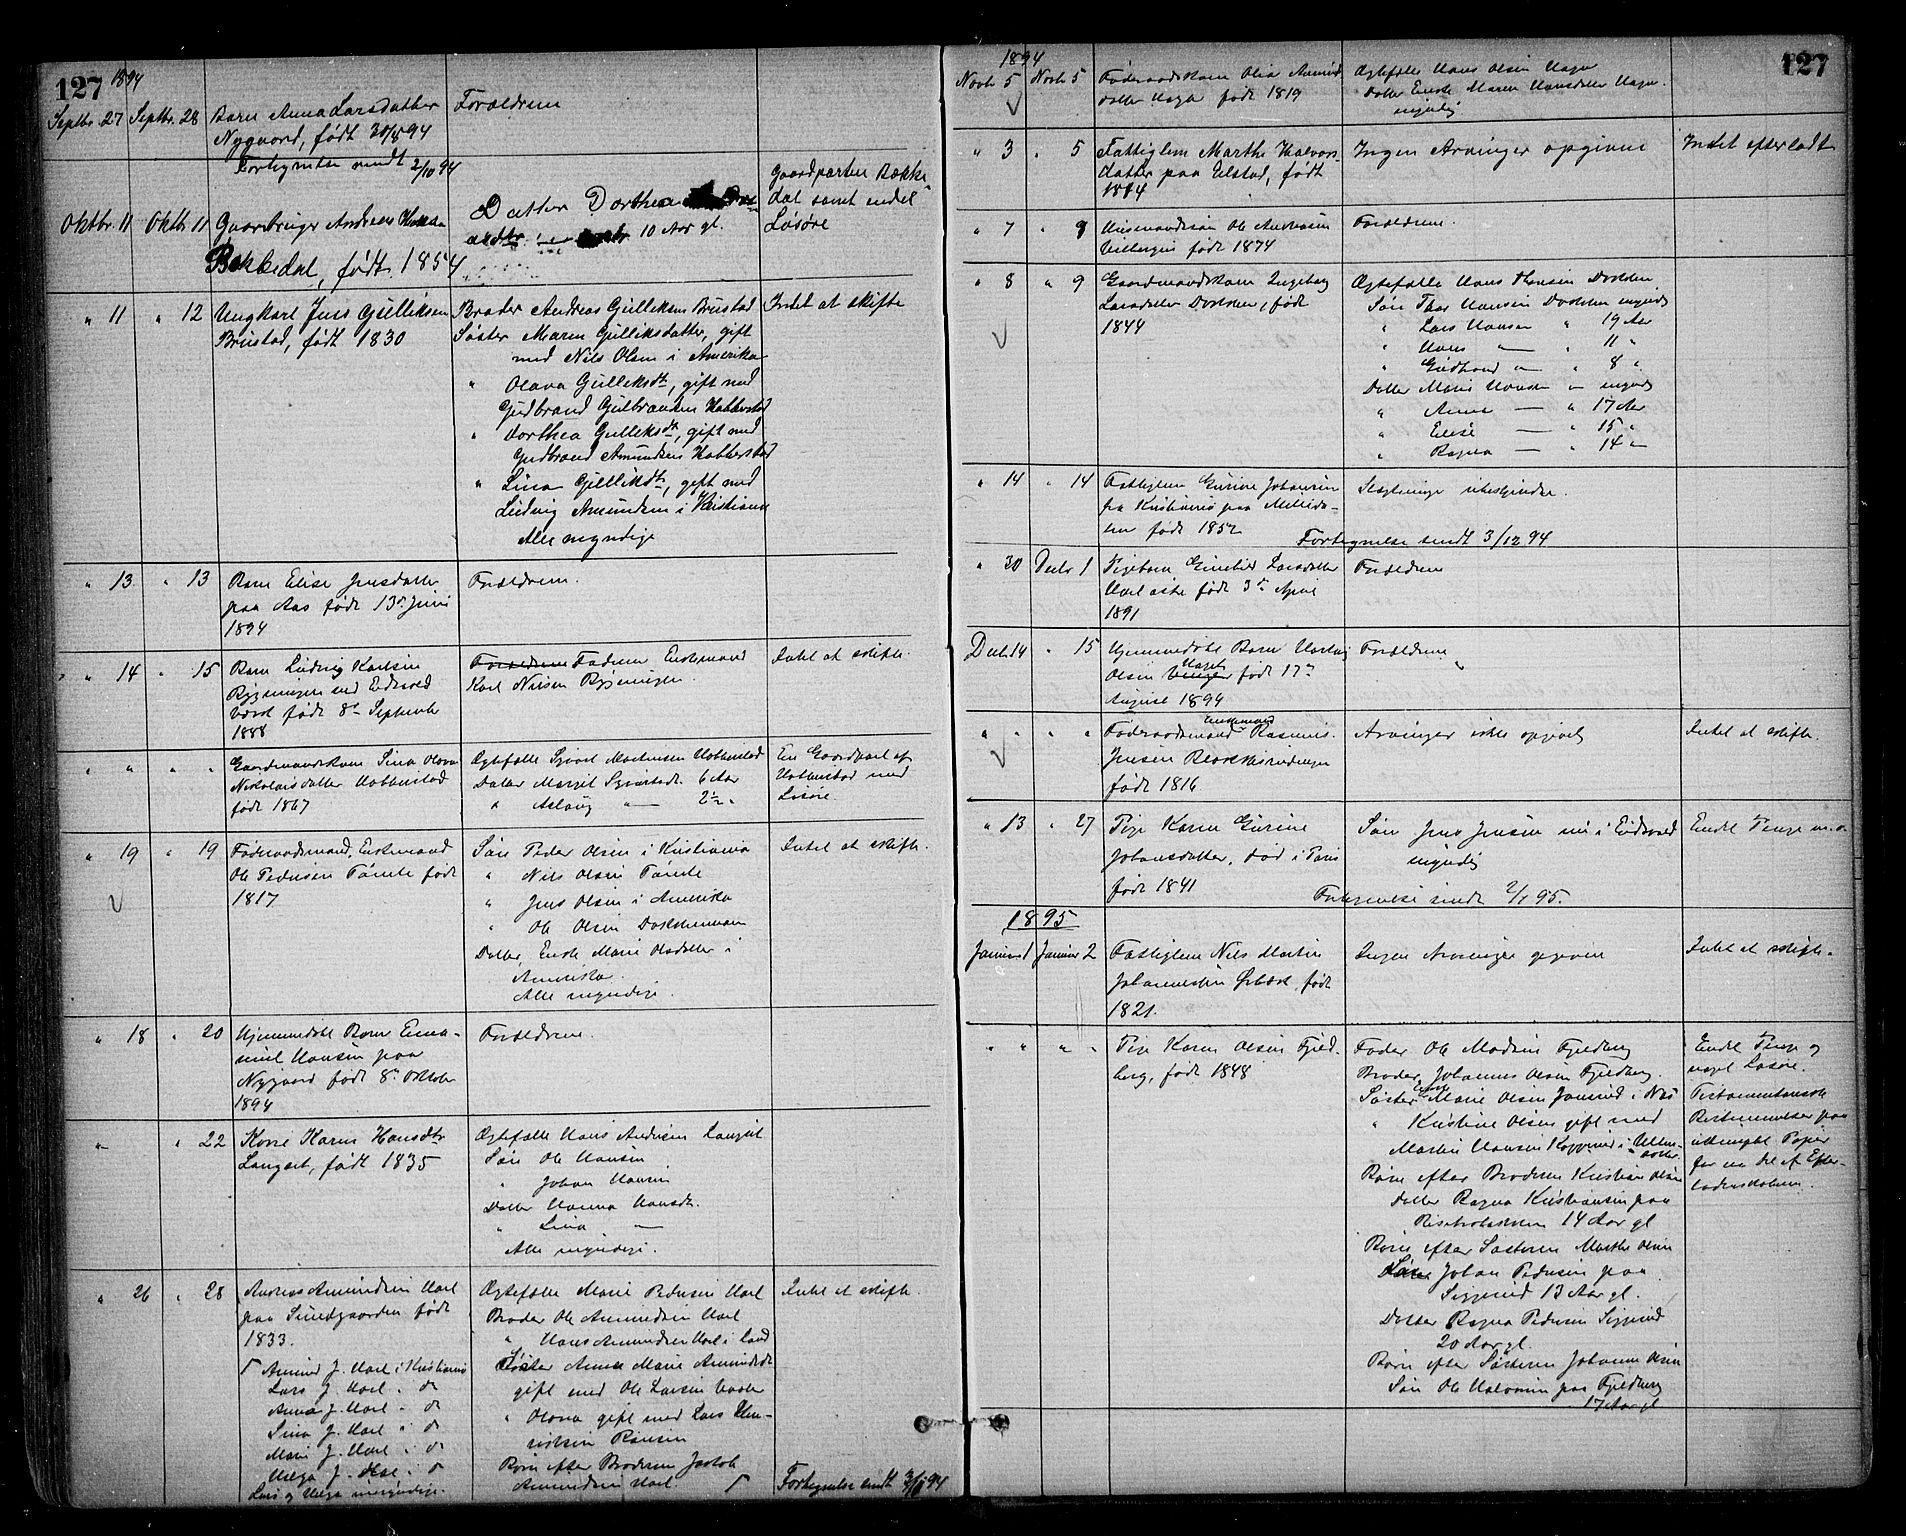 127 1894
Septbr. 27 Septbr. 28 Barn Anna Larsdatter Forældrene
Nygaard, født 30/8 94
Fortegnelse sendt 2/10 94
Oktbr. 11 Oktbr 11 Gaardbruger Andreas
Bækkedal, født 1854
Datter Dorthea
10 Aar gl.
Gaardparten Bække-
dal samt endel
Løsøre
" 11 " 12 Ungkarl Jens Gulliksen
Brustad, født 1830
Broder Andreas Gulliksen Brustad
Søster Maren Gulliksdatter, gift
med Nils Olsen i Amerika
" Olava Gulliksdt, gift med
Gudbrand Gulbrandsen Habberstad
" Dorthea Gulliksdt, gift med
Gudbrand Amundsen Habberstad
" Lina Gulliksdt, gift med
Ludvig Amundsen i Kristiania
Alle myndige
Intet at skifte
" 13 " 13 Barn Elise Jensdatter
paa Aas født 13de Juni
1894
Forældrene.
" 14 " 15 Barn Ludvig Karlsen
Bygningen ved Eidsvold
Værk født 8de September
1888
Forældrene Faderen Enkemand
Karl Nilsen Bygningen.
Intet at skifte.
" " " " Gaardmandskone Lina Olava
Nikolaisdatter Habberstad
født 1867
Ægtefælle Sjovel Martinsen Habberstad
Datter Margit 6 Aar
" Aslaug " 2½ "
En Gaardpart af
Habberstad med
Løsøre.
" 19 " 19 Føderaadsmand, Enkemand
Ole Pedersen Tømte født
1817
Søn Peder Olsen i Kristiania
" Nils Olsen Tømte
" Jens Olsen i Amerika
" Ole Olsen
Datter, Enke Marie Olsdatter i
Amerika.
Alle myndige.
Intet at skifte.
" 18 " 20 Hjemmedøbt Barn Ema-
nuel Hansen paa
Nygaard født 8de Oktober
1894
Forældrene.
" " 22 Kone Karen Hansdtr
Langset, født 1835
Ægtefælle Hans Andersen Langset
Søn Ole Hansen
" Johan Hansen
Datter Hanna Hansdt.
" Lina —
Alle myndige.
" 26 " 28 Andreas Amundsen Hoel
paa Sundgaarden født
1833.
Γ Amund J. Hoel i Kristiania
Lars J. Hoel " do
Anna J. Hoel " do
Lina J. Hoel i do
Marie J. Hoel i do
Helga J. Hoel i do
Lars og Helga umyndige.
Ægtefælle Marie Pedersen Hoel
Broder Ole Amundsen Hoel
" Hans Amundsen Hoel i Land
Søster Anne Marie Amundsdt
gift med Ole Larsen
" Olava gift med Lars Hen-
riksen
Børn efter Broderen Jakob
Amundsen Hoel. Γ
Intet at skifte.
Fortegnelse sendt 94
1894 127
Novb 5 Novb 5 Føderaadskone Olia Amund
datter Haga født 1819
Ægtefælle Hans Olsen Haga
Datter Enke Maren Hansdatter Haga.
myndig
" 3 " 5 Fattiglem Marthe Halvors-
datter paa Eilstad, født
1814
Ingen Arvinger opgivne
Intet efterladt
" 7 " 9 Husmandssøn Ole Andreasen
født 1874
Forældrene.
" 8 " 9 Gaardmandskone Ingeborg
Larsdatter Dokken, født
1844
Ægtefælle Hans Thorsen Dokken
Søn Thor Hansen Dokken myndig
" Lars Hansen " 19 Aar
" Hans — " 11 "
" Gudbrand — " 8 "
Datter Marie Hansen — myndig
" Anna — " 17 Aar
" Elise — " 15 "
" Ragna — " 14 "
" 14 " 14 Fattiglem Gurine Johansen
fra Kristiania paa
født 1852
Slægtninge ubekjendte.
Fortegnelse sendt 3/12 94
" 30 Decbr 1 Pigebarn Larsdatter
født 3de April
1891
Forældrene
Decbr 14 " 15 Hjemmedøbt Barn Hartvig
Olsen født 17de
August 1894
Forældrene
" " " " Føderaadsmand Enkemand Rasmus
Jensen
født 1816
Arvinger ikke opgivet
Intet at skifte.
" 13 " 27 Pige Karen Gurine
Johansdatter, død i Paris
født 1841
Søn Jens Jensen nu i Eidsvold
myndig
Endel Penge m.v.
Fortegnelse sendt 2/1 95.
1895
Januar 1 Januar 2 Fattiglem Nils Martin
Johannessen Ørbæk, født
1821.
Ingen Arvinger opgivne
Intet at skifte.
" " " " Pige Karen Olsen Fjeld-
berg, født 1848
Fader Ole Madsen Fjeldberg
Broder Johannes Olsen Fjeldberg.
Søster Enke Marie Olsen i Næs
" Kristine Olsen gift med
Martin Hansen i Ullen-
saker
Børn efter Broderen Kristian Olsen
Datter Ragna Kristiansen paa
14 Aar gl
Børn efter Søsteren Marthe Olsen
Søn Johan Pedersen paa
13 Aar gl.
Datter Ragna Pedersen
20 Aar gl.
Børn efter Søsteren Johanne Olsen
Søn Ole Halvorsen paa Fjeldberg
17 Aar gl
Endel Penge og
noget Løsøre.
Testamentariske
Bestemmelser paa
ustemplet Papir
for en Del af Efter-
ladenskaberne.